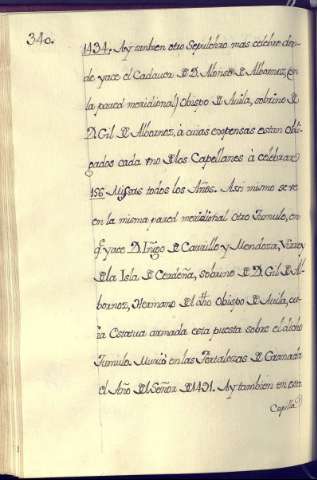 340.
1434. Ay tambien otro Sepulchro mas celebre don-
de yace el Cadaver de D. Alonso de Albornoz, (en
la pared meridional) Obispo de Avila, sobrino de
D. Gil de Albornoz, à cuias expensas estan obli-
gados cada uno de los Capellanes à celebrar
156 Missas todos los Años. Asi mismo se ve
en la misma pared meridional otro Tumulo, en
q.e yace D. Iñigo de Carrillo y Mendoza, Virrey
de la Isla de Cerdeña, sobrino de D. Gil de Al-
bornoz, Hermano del dho Obispo de Avila, cu-
ia Estatua armada està puesta sobre el dicho
Tumulo. Muriò en las Fortalezas de Granada
el Año del Señor de 1491. Ay tambien en esta
Capilla